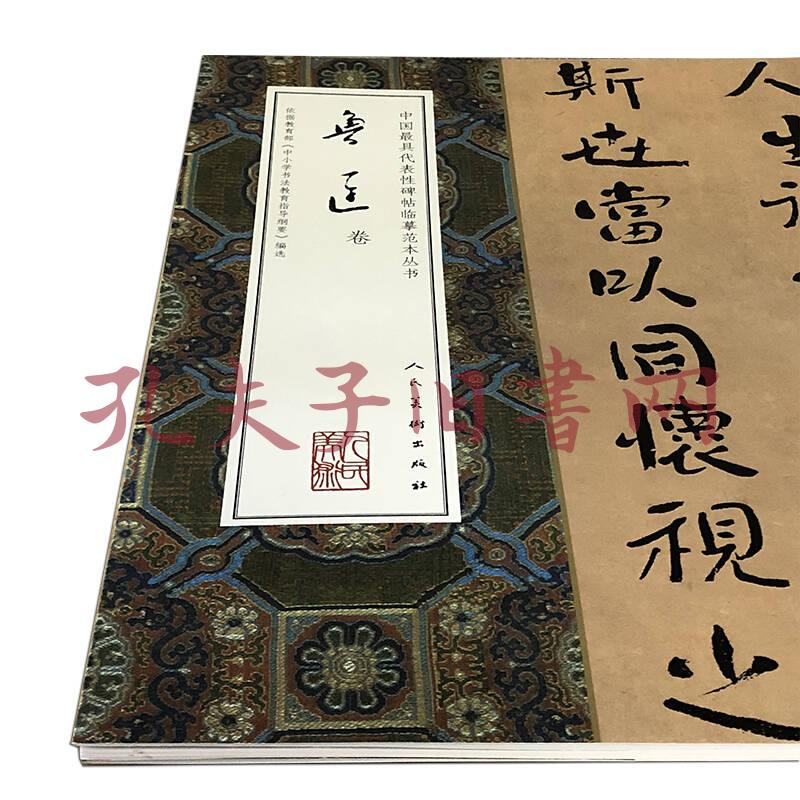 人生
斯世當以同懷視之
中国最具代表性碑帖临摹范本丛书
魯迅 卷
依据教育部《中小学书法教育指导纲要》编选
人民美術出版社
孔夫子旧书网